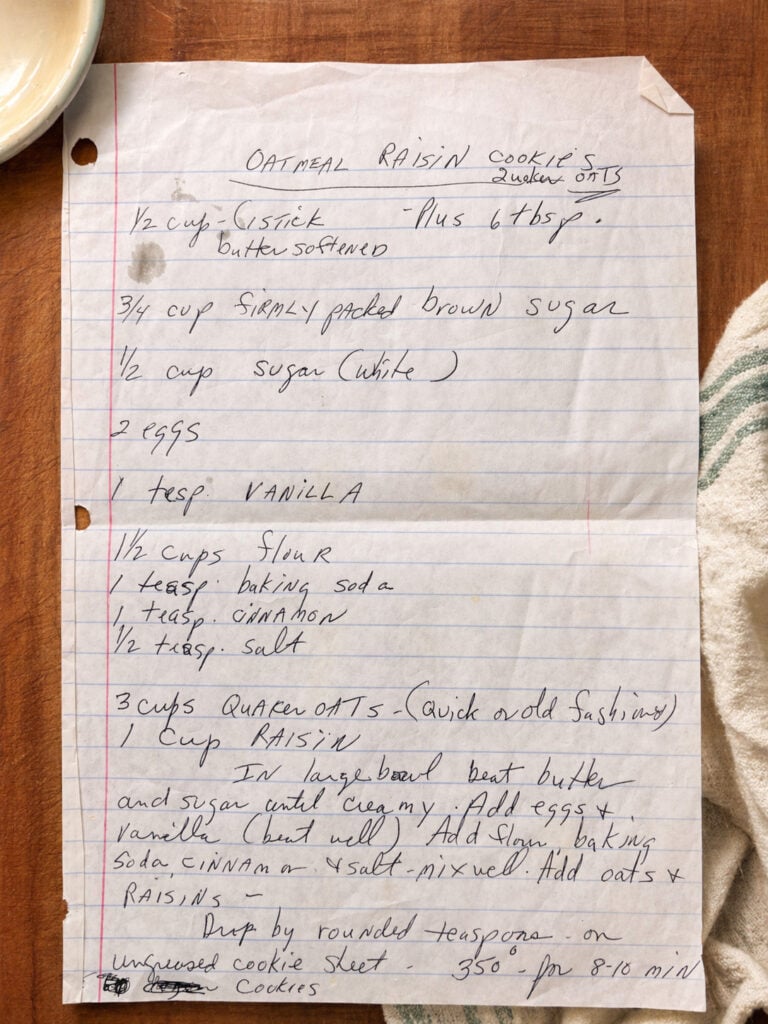 OATMEAL RAISIN COOKIES
Quaker OATS
1/2 cup - (1 STICK - Plus 6 tbsp.
butter softened
3/4 cup FIRMLY packed brown sugar
1/2 cup sugar (white)
2 eggs
1 tesp. VANILLA
1 1/2 cups flour
1 teasp. baking soda
1 teasp. CINNAMON
1/2 teasp. salt
3 cups QUAKER OATS - (Quick or old fashioned)
1 Cup RAISIN
IN large bowl beat butter
and sugar until creamy. Add eggs +
vanilla (beat well) Add flour, baking
soda, CINNAMON + salt - mix well. Add oats +
RAISINS -
Drop by rounded teaspoons - on
ungreased cookie sheet - 350° - for 8-10 min
Cookies